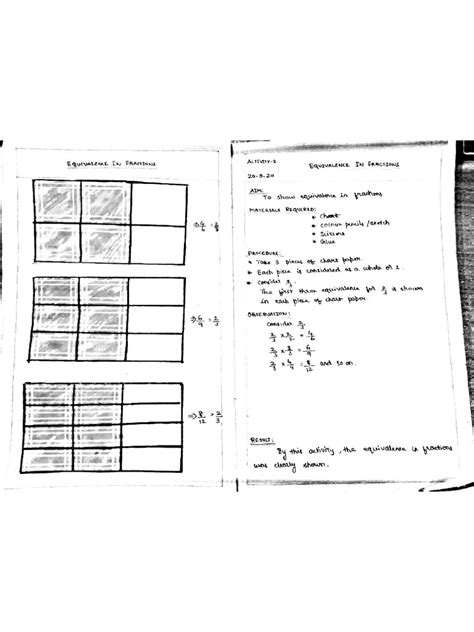 EQUIVALENCE IN FRACTIONS
⇒ 4/6 = 2/3
⇒ 6/9 = 2/3
⇒ 8/12 = 2/3
ACTIVITY-2
20-8-20
EQUIVALENCE IN FRACTIONS
AIM:
To show equivalence in fractions
MATERIALS REQUIRED:
* Chart
* colour pencils / sketch
* Scissors
* Glue
PROCEDURE:
* Take 3 pieces of chart paper
* Each piece is considered as a whole or 1.
* Consider 2/3.
The first three equivalence for 2/3 is shown
in each piece of chart paper
OBSERVATION:
Consider 2/3
2/3 × 2/2 = 4/6
2/3 × 3/3 = 6/9
2/3 × 4/4 = 8/12 and so on.
RESULT:
By this activity, the equivalence in fractions
was clearly shown.